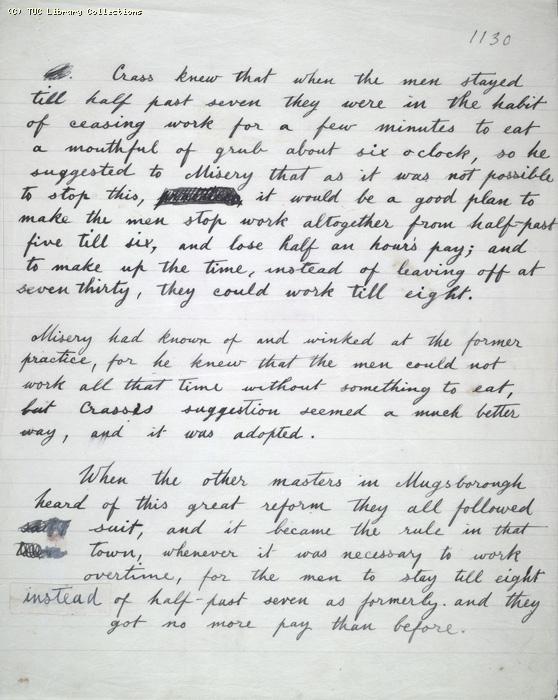 (C) TUC Library Collections
1130
Crass knew that when the men stayed
till half past seven they were in the habit
of ceasing work for a few minutes to eat
a mouthful of grub about six oclock, so he
suggested to Misery that as it was not possible
to stop this, it would be a good plan to
make the men stop work altogether from half-past
five till six, and lose half an hours pay; and
to make up the time, instead of leaving off at
seven thirty, they could work till eight.
Misery had known of and winked at the former
practice, for he knew that the men could not
work all that time without something to eat,
but Crass's suggestion seemed a much better
way, and it was adopted.
When the other masters in Mugsborough
heard of this great reform they all followed
suit, and it became the rule in that
town, whenever it was necessary to work
overtime, for the men to stay till eight
instead of half-past seven as formerly. and they
got no more pay than before.